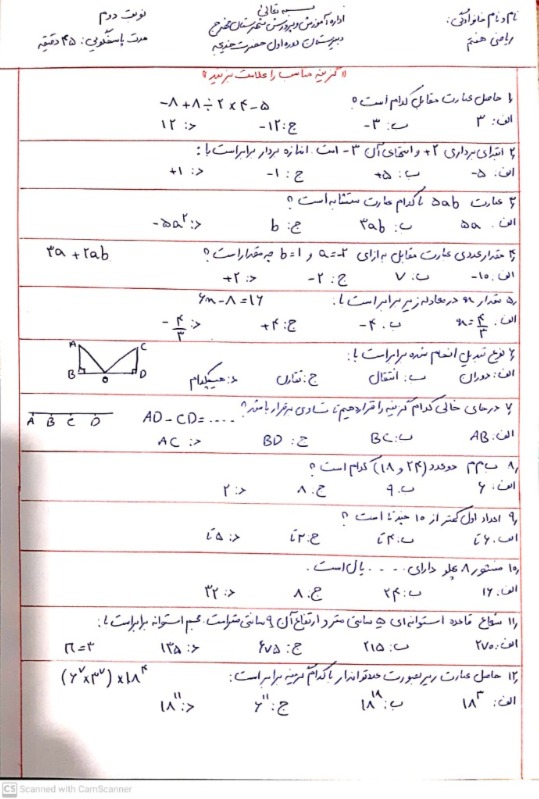 بسمه تعالی
نام و نام خانوادگی:
اداره آموزش و پرورش شهرستان
نوبت دوم
ریاضی هفتم
دبیرستان دوره اول حضرت خدیجه
مدت پاسخگویی: ۴۵ دقیقه
«گزینه مناسب را علامت بزنید»
۱) حاصل عبارت مقابل کدام است؟ -۸+۸÷۲×۴-۵
الف: ۳ ب: -۳ ج: -۱۲ د: ۱۲
۲) ابتدای برداری +۲ و انتهای آن -۳ است. اندازه بردار برابر است با:
الف: -۵ ب: +۵ ج: -۱ د: +۱
۳) عبارت 5ab با کدام عبارت متشابه است؟
الف: 5a ب: 3ab ج: b د: -5a²
۴) مقدار عددی عبارت مقابل به ازای a=-2 و b=1 چه مقدار است؟ 3a+2ab
الف: -۱۰ ب: ۷ ج: -۲ د: +۲
۵) مقدار n در معادله زیر برابر است با: 6n-8=16
الف: n=4/3 ب: -۴ ج: +۴ د: -4/3
۶) نوع تبدیل انجام شده برابر است با: A C B O D
الف: دوران ب: انتقال ج: تقارن د: هیچکدام
۷) در جای خالی کدام گزینه را قرار دهیم تا تساوی برقرار باشد؟ AD-CD=.... A B C D
الف: AB ب: BC ج: BD د: AC
۸) ب م م دو عدد (۲۴ و ۱۸) کدام است؟
الف: ۶ ب: ۹ ج: ۸ د: ۲
۹) اعداد اول کمتر از ۱۵ چند تا است؟
الف: ۶ تا ب: ۴ تا ج: ۳ تا د: ۵ تا
۱۰) منشور ۸ پهلو دارای .... یال است.
الف: ۱۶ ب: ۲۴ ج: ۸ د: ۳۲
۱۱) شعاع قاعده استوانه ای ۵ سانتی متر و ارتفاع آن ۹ سانتی متر است. حجم استوانه برابر است با:
الف: ۲۷۰ ب: ۲۱۵ ج: ۶۷۵ د: ۱۳۵ π=۳
۱۲) حاصل عبارت زیر بصورت عدد توان دار با کدام گزینه برابر است: (۶⁷×۳⁷)×۱۸⁴
الف: ۱۸³ ب: ۱۸²⁸ ج: ۶¹¹ د: ۱۸¹¹
CS Scanned with CamScanner